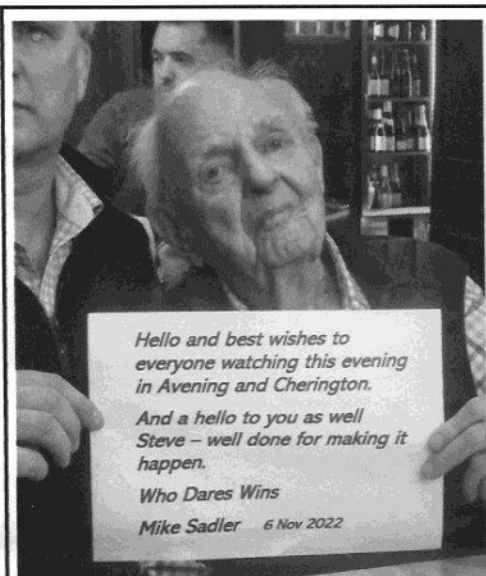 Hello and best wishes to
everyone watching this evening
in Avening and Cherington.
And a hello to you as well
Steve – well done for making it
happen.
Who Dares Wins
Mike Sadler 6 Nov 2022